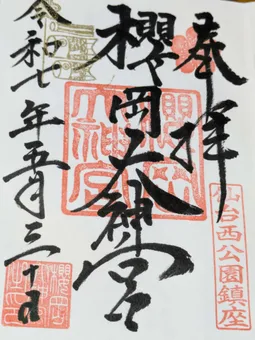 奉拝
櫻岡大神宮
令和七年五月三十日
仙台西公園鎮座